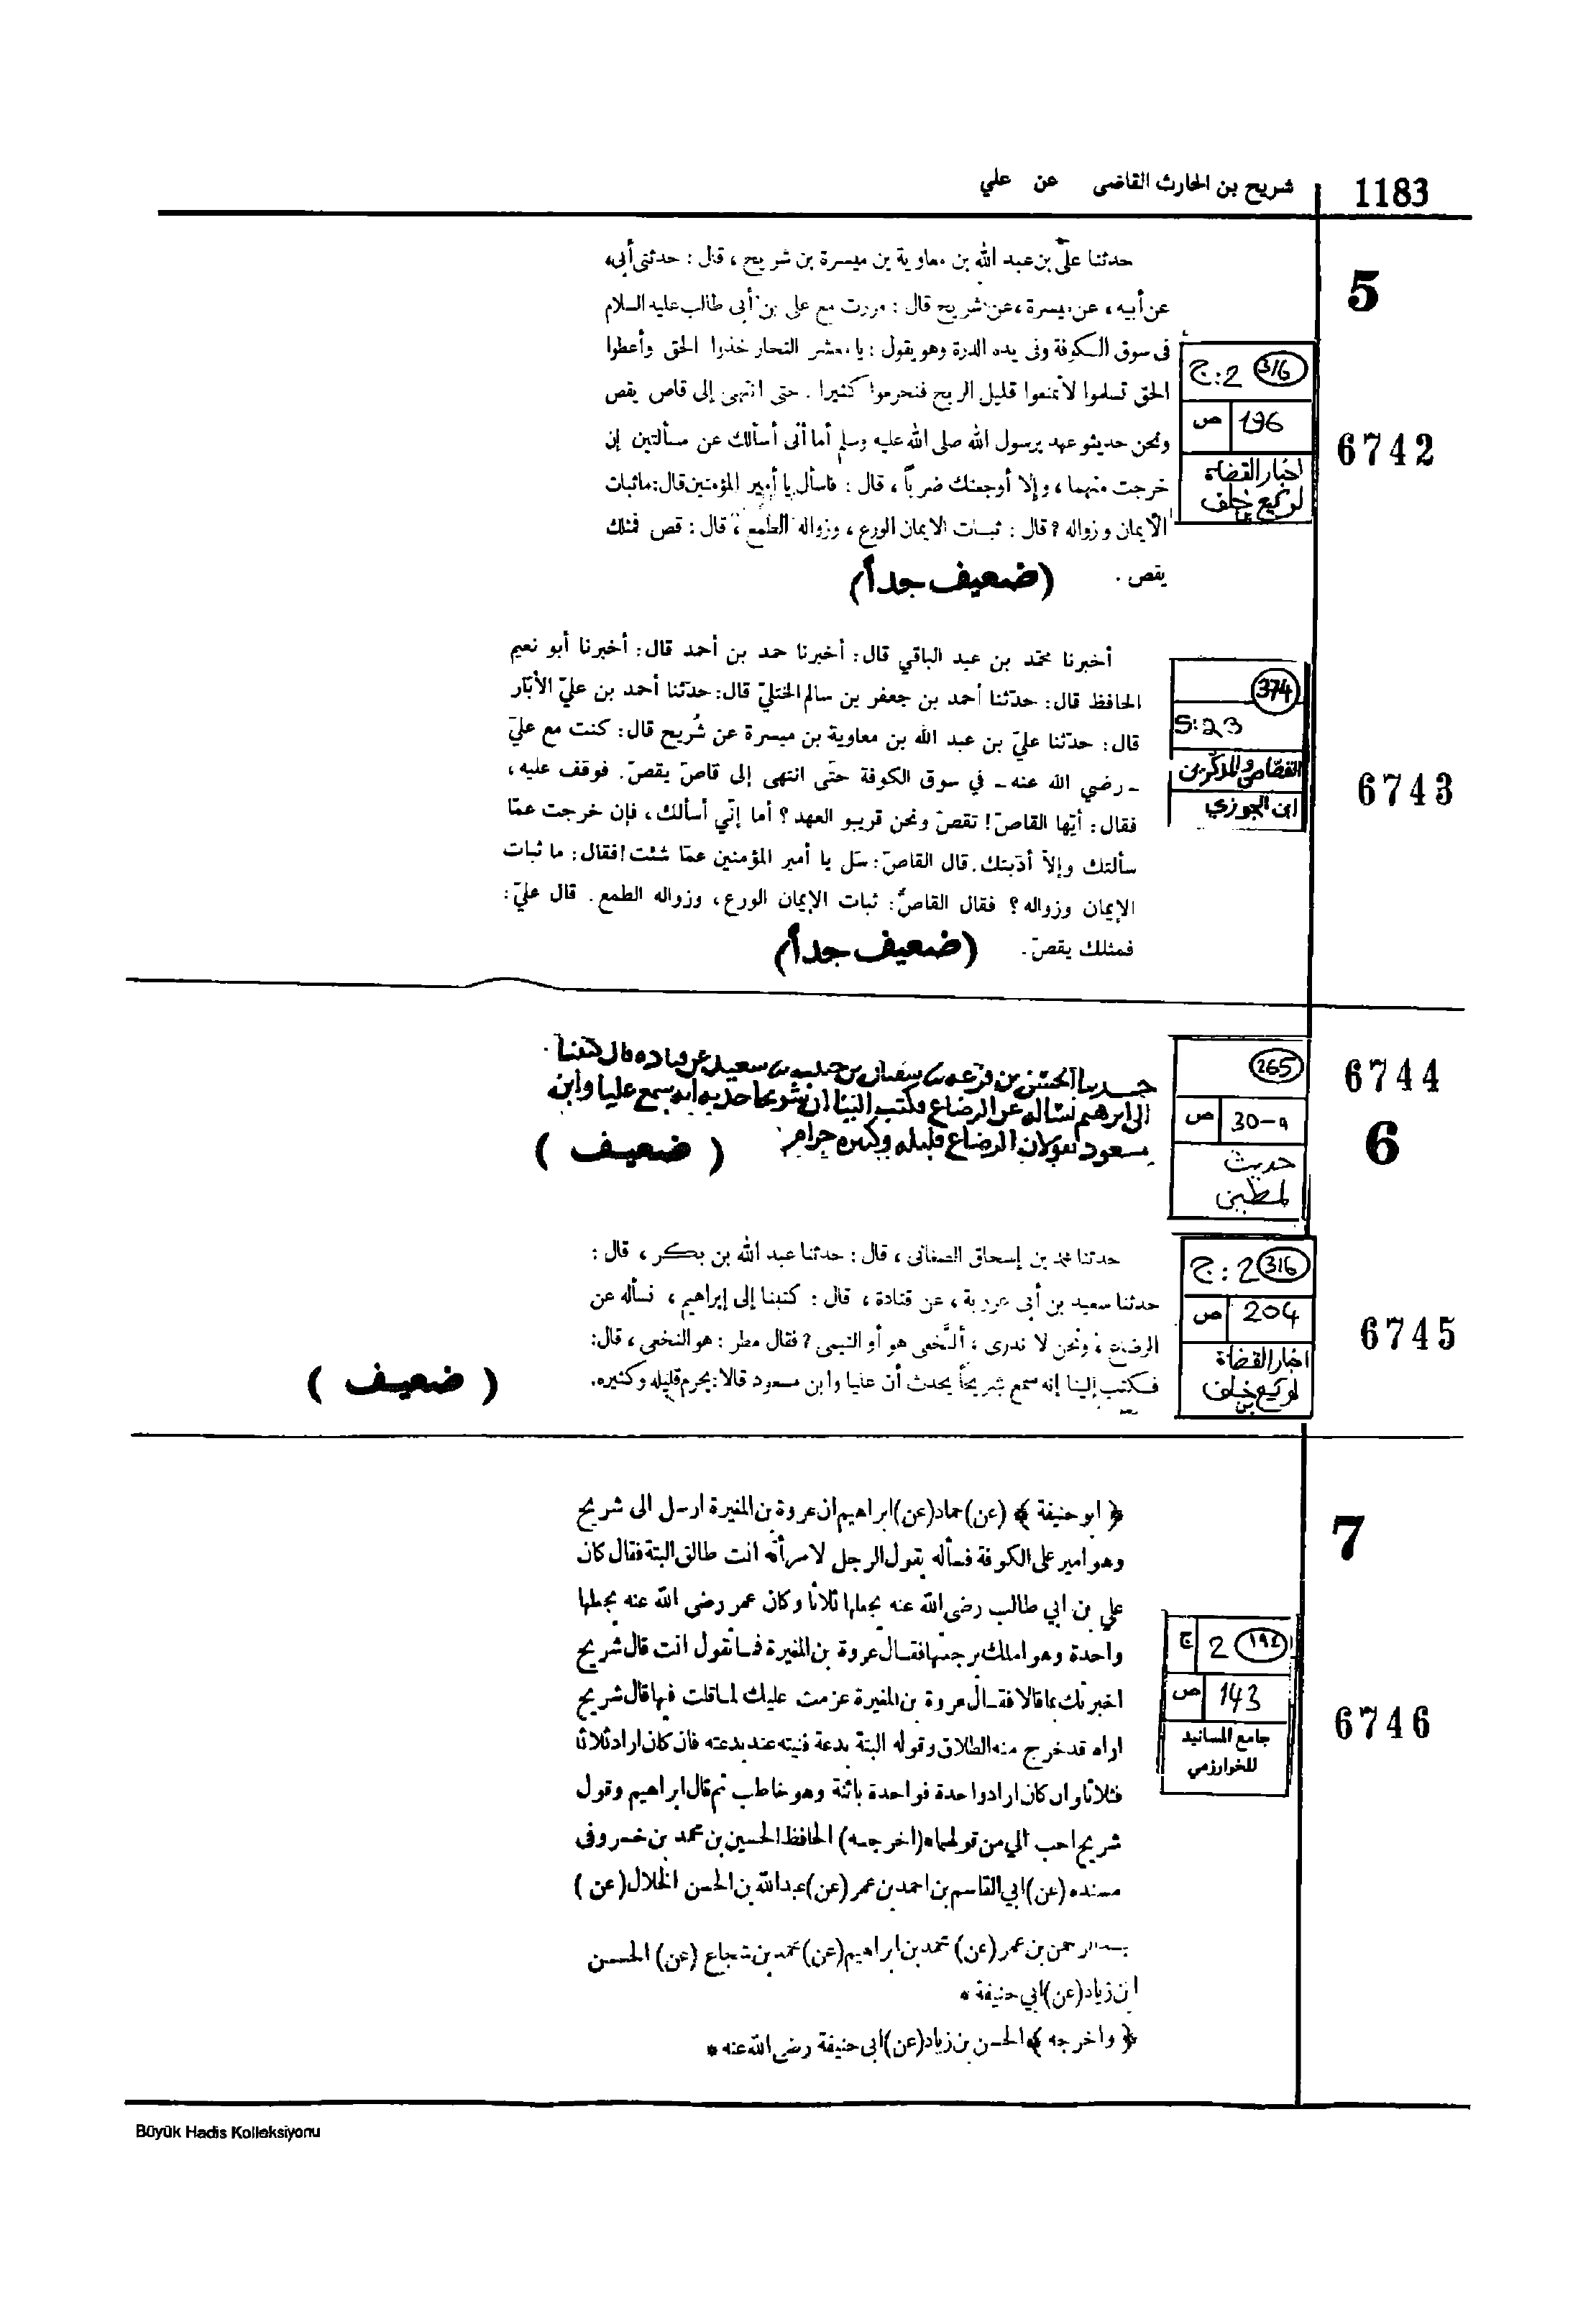 1183
شريح بن الحارث القاضى عن علي
5
حدثنا علىّ بن عبد الله بن معاوية بن ميسرة بن شريح ، قال : حدثنى أبى،
عن أبيه ، عن ميسرة ، عن شريح قال : مررت مع على بن أبى طالب عليه السلام
فى سوق الكوفة وفى يده الدرة وهو يقول : يا معشر التجار خذوا الحق وأعطوا
الحق تسلموا لا تمنعوا قليل الربح فتحرموا كثيرا . حتى انتهى إلى قاص يقص
ونحن حديثو عهد برسول الله صلى الله عليه وسلم أما أنى أسألك عن مسألتين إن
خرجت منهما ، وإلا أوجعتك ضرباً ، قال : فاسأل يا أمير المؤمنين قال: ما ثبات
الايمان وزواله ؟ قال : ثبات الايمان الورع ، وزواله الطمع ، قال : قص فمثلك
يقص .
(ضعيف جداً)
316 ج: 2
ص 196
اخبار القضاة
لوكيع بن خلف
6742
أخبرنا محمّد بن عبد الباقي قال: أخبرنا حمد بن أحمد قال: أخبرنا أبو نعيم
الحافظ قال: حدّثنا أحمد بن جعفر بن سالم الختليّ قال: حدّثنا أحمد بن عليّ الأبّار
قال: حدّثنا عليّ بن عبد الله بن معاوية بن ميسرة عن شُريح قال: كنت مع عليّ
ـ رضي الله عنه ـ في سوق الكوفة حتّى انتهى إلى قاصّ يقصّ. فوقف عليه،
فقال: أيّها القاصّ! تقصّ ونحن قريبو العهد؟ أما إنّي أسألك، فإن خرجت عمّا
سألتك وإلاّ أدّبتك. قال القاصّ: سَل يا أمير المؤمنين عمّا شئت! فقال: ما ثبات
الإيمان وزواله؟ فقال القاصّ: ثبات الإيمان الورع، وزواله الطمع. قال عليّ:
فمثلك يقصّ.
(ضعيف جداً)
374
S:23
القصّاص والمذكّرين
ابن الجوزي
6743
حدثنا الحسن بن قزعه ثنا سفيان بن حبيب ثنا سعيد عن قتاده قال كتبنا
الى ابرهيم نساله عن الرضاع فكتب الينا ان شريحا حدثه انه سمع عليا وابن
مسعود يقولان الرضاع قليله وكثيره حرام
( ضعيف )
265
ص 30-a
حديث
لمطين
6744
6
حدثنا محمد بن إسحاق الصغانى ، قال : حدثنا عبد الله بن بكر ، قال :
حدثنا سعيد بن أبى عروبة ، عن قتادة ، قال : كتبنا إلى إبراهيم ، نسأله عن
الرضاع ، ونحن لا ندرى ، ألنَّخعى هو أو التيمى ؟ فقال مطر : هو النخعى ، قال:
فكتب إلينا إنه سمع شريحاً يحدث أن عليا وابن مسعود قالا: يحرم قليله وكثيره.
( ضعيف )
316 ج: 2
ص 204
اخبار القضاة
لوكيع بن خلف
6745
﴿ ابو حنيفة ﴾ (عن) حماد (عن) ابراهيم ان عروة بن المغيرة ارسل الى شريح
وهو امير على الكوفة فسأله بقول الرجل لامرأته انت طالق البتة فقال كان
علي بن ابي طالب رضى الله عنه يجعلها ثلاثا وكان عمر رضى الله عنه يجعلها
واحدة وهو املك برجعتها فقال عروة بن المغيرة فما تقول انت قال شريح
اخبرتك بما قالا فقال عروة بن المغيرة عزمت عليك لما قلت فيها قال شريح
اراه قد خرج منه الطلاق وقوله البتة بدعة فنيته عند بدعته فان كان اراد ثلاثا
فثلاثا وان كان اراد واحدة فواحدة بائنة وهو خاطب ثم قال ابراهيم وقول
شريح احب الي من قولهما * (اخرجه) الحافظ الحسين بن محمد بن خسرو فى
مسنده (عن) ابي القاسم بن احمد بن عمر (عن) عبد الله بن الحسن الخلال (عن )
عبد الرحمن بن عمر (عن) محمد بن ابراهيم (عن) محمد بن شجاع (عن) الحسن
ابن زياد (عن) ابي حنيفة *
﴿ واخرجه ﴾ الحسن بن زياد (عن) ابى حنيفة رضى الله عنه *
7
ج 2
ص 143
جامع المسانيد
للخوارزمي
6746
Büyük Hadis Kolleksiyonu